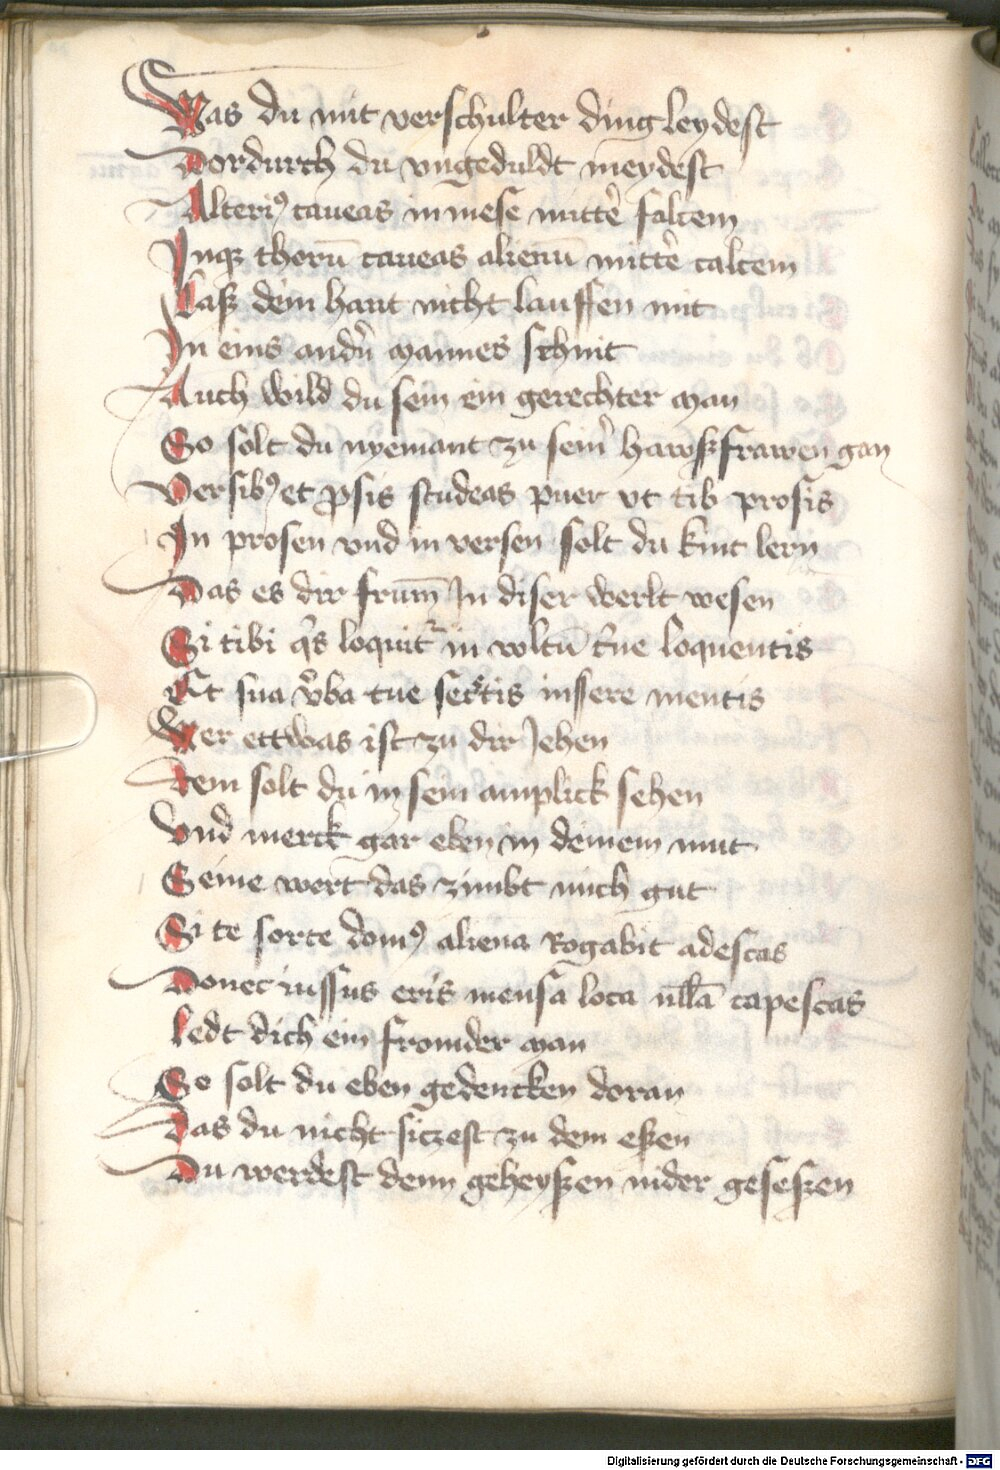 Was du mit verschulter ding leydest
Dordurch du vngeduldt meydest
Alteri⁹ caueas in mese mitte͛ falcem
Inqꝫ thorū caueas alienū mitte͛ calcem
Laß dein hant nicht lauffen mit
In eins and͛n mannes schnit
Auch wild du sein ein gerechter man
So solt du nyemant zu sein͛ hawßfrawen gan
Versib⁹ et ꝓsis studeas puer vt tib prosis
In prosen vnd in versen solt du kint lern
Das es dir frum̄ In diser werlt wesen
Si tibi q͛s loquit᷑ in voltū t͛ne loquentis
Et sua v͛ba tue sec͛tis inssere mentis
Wer ettwas ist zu dir Jehen
Dem solt du in sein amplick sehen
Vnd merck gar eben in deinem mut
Seine wort das zimbt mich gut
Si te sorte dom⁹ aliena Rogabit adescas
Donec iussus eris mensa loca nll̄a capescas
ledt dich ein fromder man
So solt du eben gedencken doran
Das du nicht siczest zu dem eßen
Du werdest denn geheyßen nider geseßen
Digitalisierung gefördert durch die Deutsche Forschungsgemeinschaft - DFG